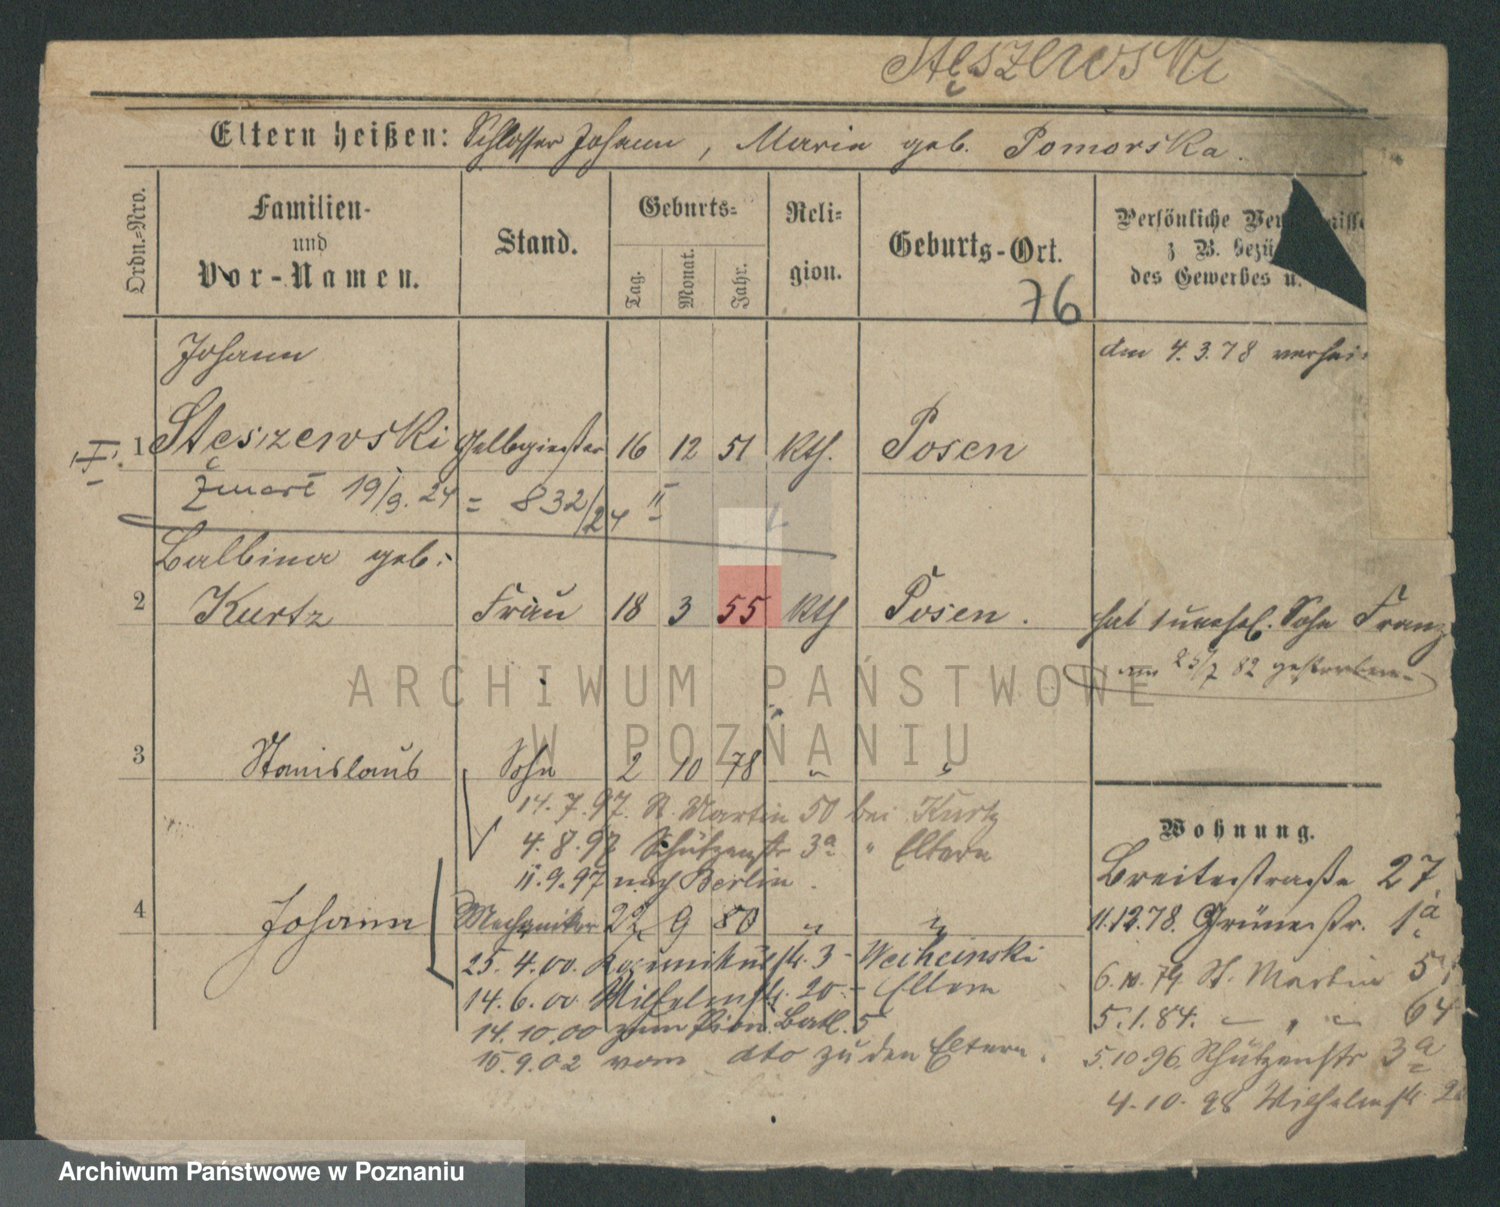 Stęszewski
Eltern heißen: Schlosser Johann, Maria geb. Pomorska.
Ordn.-Nro.
Familien-
und
Vor-Namen.
Stand.
Geburts-
Tag.
Monat.
Jahr.
Reli-
gion.
Geburts-Ort.
76
Persönliche
z. B. bezü
des Gewerbes u.
Johann
den 4.3.78 verhei
I. 1 Stęszewski Gelbgießer 16 12 51 kth. Posen
Zmarł 19/9.24 = 832/24 II
Balbina geb.
2 Kurtz Frau 18 3 55 kth Posen.
hat 1 unehel. Sohn Franz
am 25/7 82 gestorben
ARCHIWUM PAŃSTWOWE
W POZNANIU
3 Stanislaus Sohn 2 10 78 " "
14.7.97. St. Martin 50 bei Kurtz
4.8.97 Schützenstr 3a " Eltern
11.9.97 nach Berlin.
4 Johann Mechaniker 22 9 80 " "
25.4.00. 3 -
14.6.00 Wilhelmstr. 20 - Eltern
14.10.00 zum Pion. Batl. 5
15.9.02 vom dto zu den Eltern.
Wohnung.
Breitestraße 27.
11.12.78. Grünestr. 1a
6.10.79 St. Martin
5.1.84. — " — 64
5.10.96. Schützenstr 3a
4.10.98 Wilhelmstr.
Archiwum Państwowe w Poznaniu